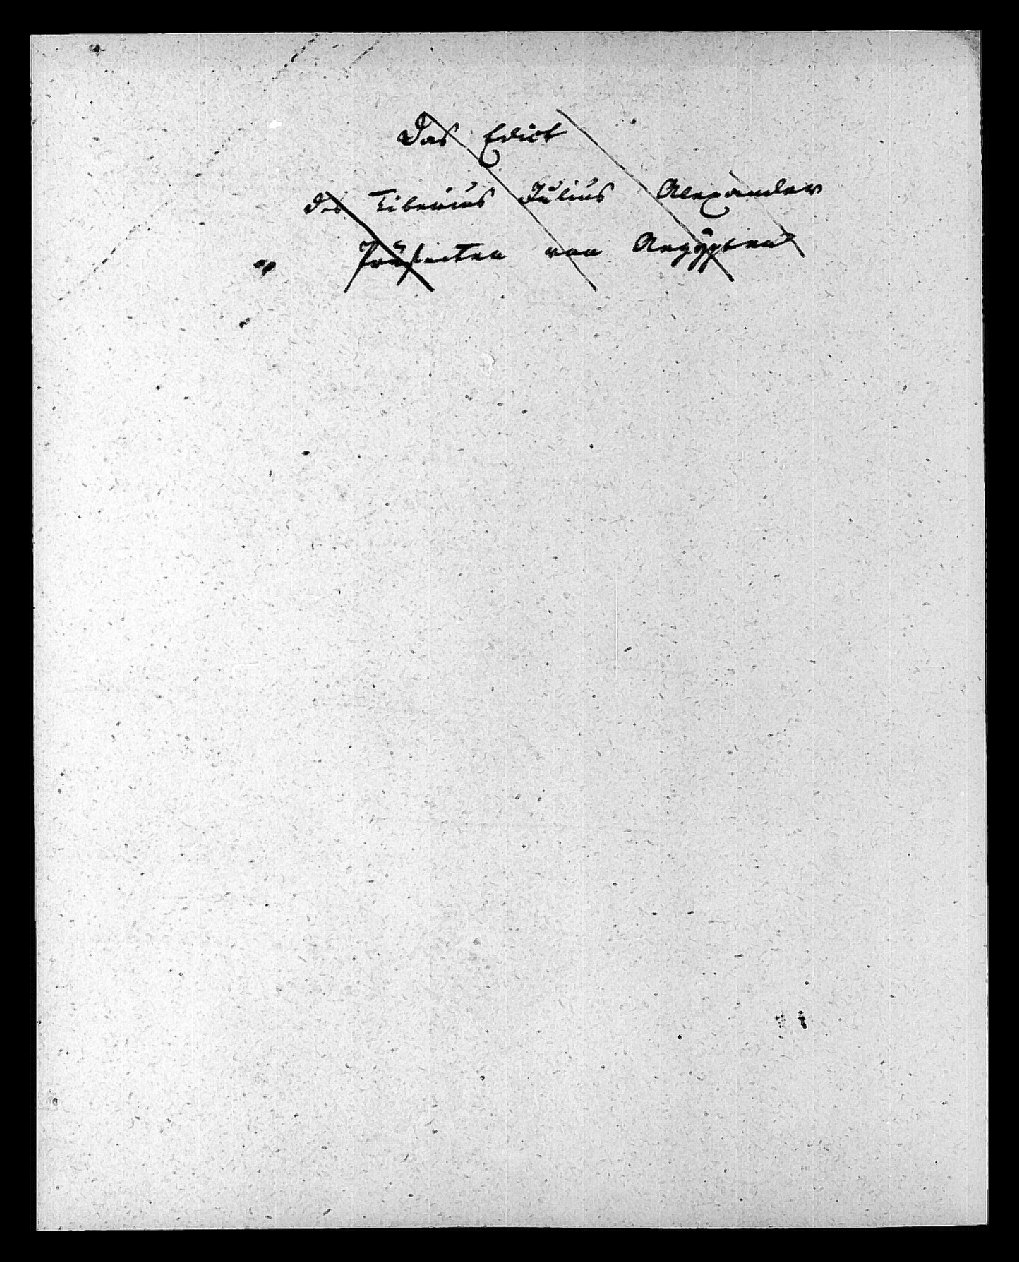 Das Edict
des Tiberius Julius Alexander
Präfecten von Aegypten